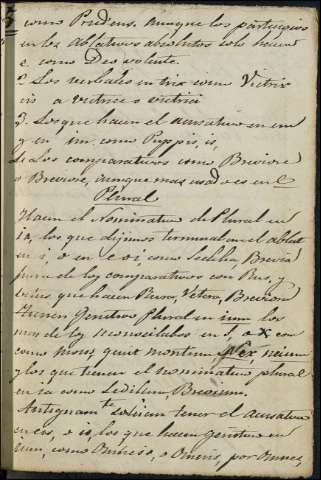 como Prudens. Aunque los participios
en los ablativos absolutos solo hacen
e como Deo volente.
2. Los verbales en trix como Victrix
cis a victrice o victrici
3. Los que hacen el acusativo en em
y en im como Puppis, is,
4. Los comparativos como Breviore
o Breviore, aunque mas usado es en e
Plural
Hacen el Nominativo de Plural en
ia, los que dijimos terminaban el ablat
en i, o en e o i como Sedilia, Brevia
fuera de los comparativos con Plus, y
vetus, que hacen Plura, Vetera, Breviora
Tienen Genitivo Plural en ium los
mas de los monosilabos en s, o x con
como mons, quint montium Nex necium
y los que tienen el nominativo plural
en ia como Sedilium, Brevium.
Antiguam.te solian tener el acusativo
en eis, o is, los que hacen genitivo en
ium, como Omneis, o Omnis, por Omnes,